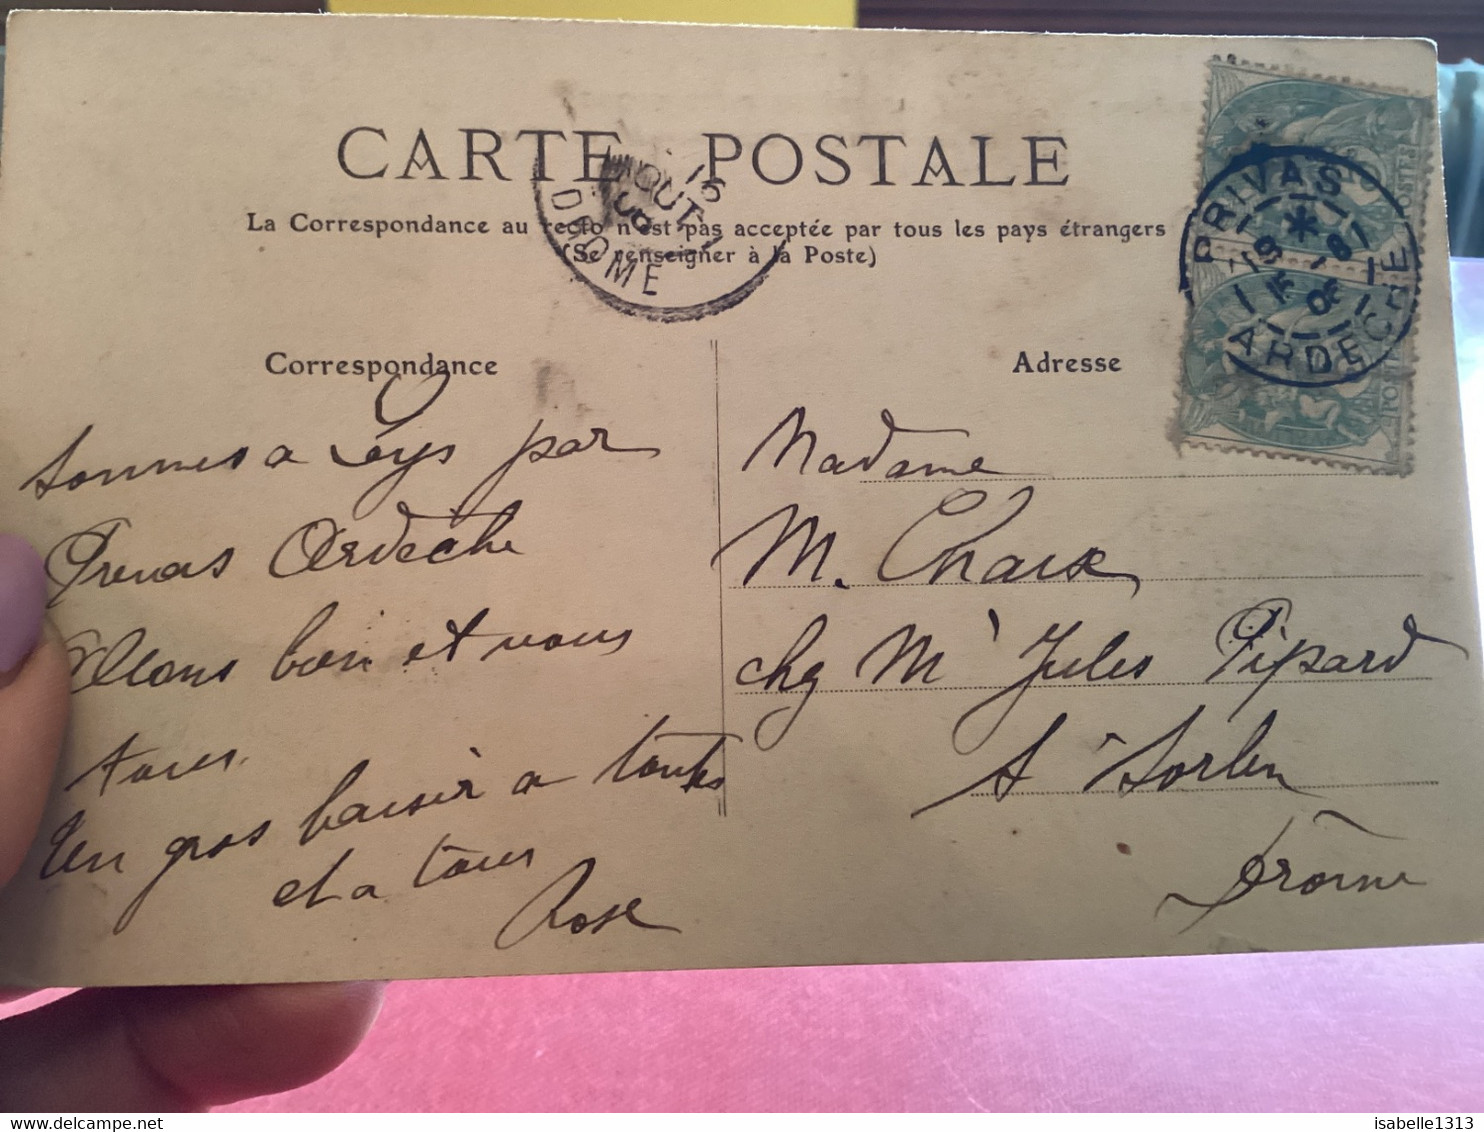 CARTE POSTALE
La Correspondance au recto n'est pas acceptée par tous les pays étrangers
(Se renseigner à la Poste)
15
AOUT
08
DROME
PRIVAS
ARDECHE
POSTES
Correspondance
sommes a Lys par
Prevas Ardèche
Allons bien et vous
tous
Un gros baisir a toutes
et a tous
Rose
Adresse
Madame
M. Chaix
chez Mr Jules Pipard
St Sorlin
Drôme
delcampe.net
isabelle1313